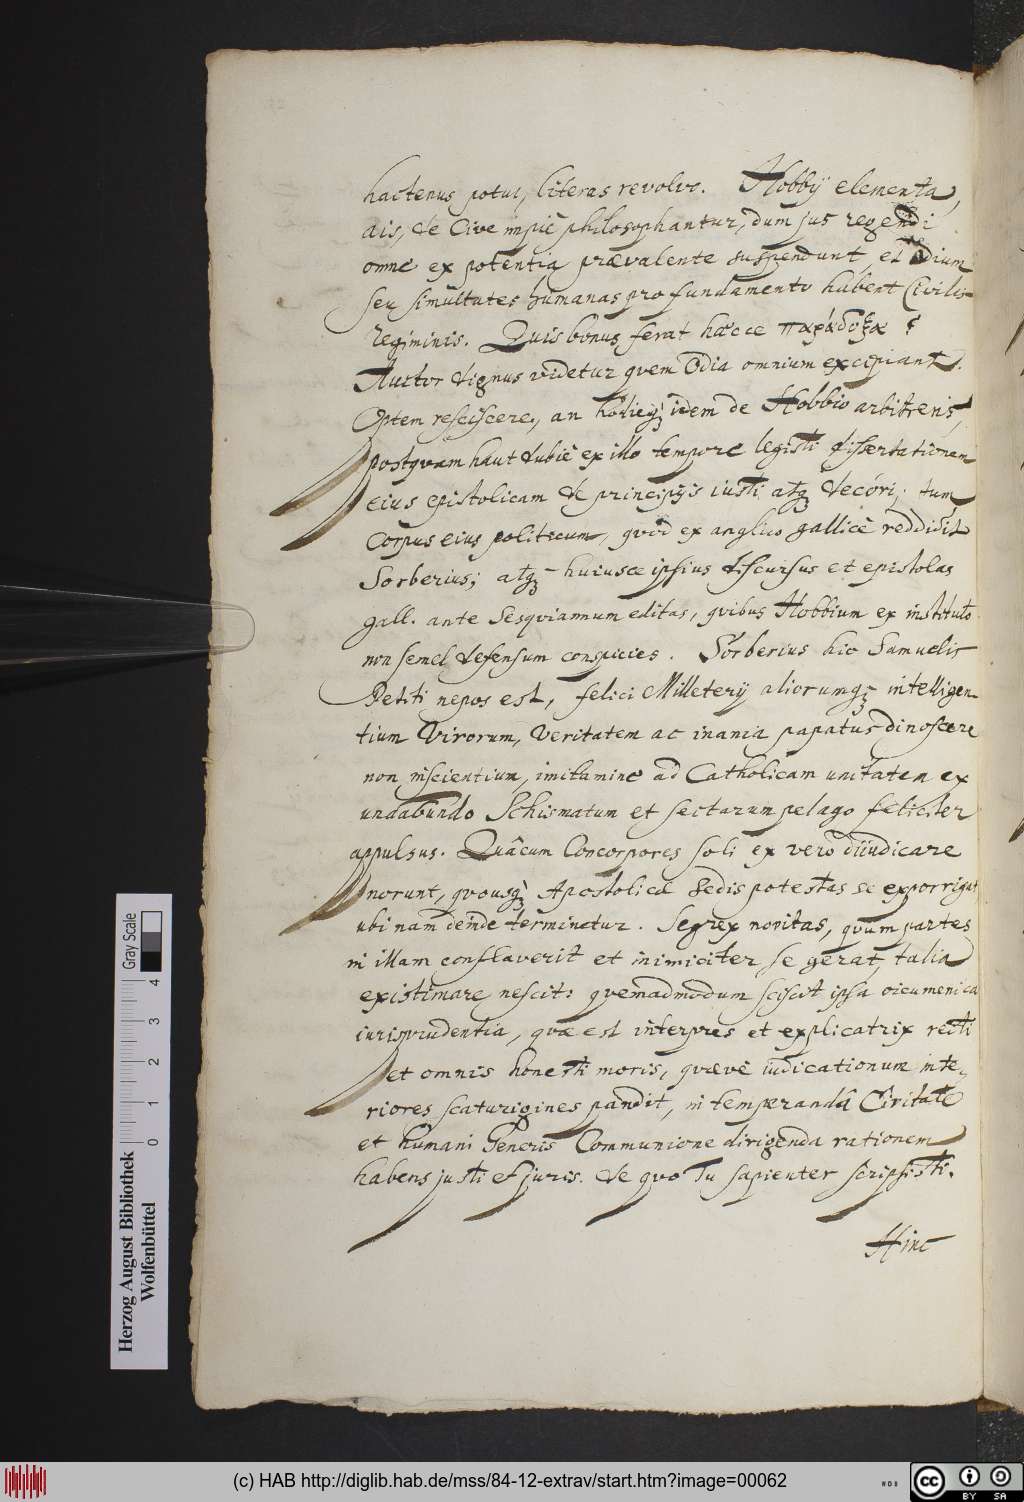 hactenus potui, literas revolvo. Hobbÿ elementa,
ais, de Cive impiè philosophantur, dum jus regendi
omne ex potentia prævalente suspendunt, et Odium
seu simultates humanas pro fundamento habent Civilis
regiminis. Quis bonus ferat hæcce παράδοξα ?
Auctor dignus videtur quem Odia omnium excipiant.
Optem resciscere, an hodieq; idem de Hobbio arbitreris,
postquam haut dubiè ex illo tempore legisti dissertationem
eius epistolicam de principijs iusti atq; decóri; tum
Corpus eius politicum, quod ex anglico gallicè reddidit
Sorberius; atq; huiusce ipsius discursus et epistolas
gall. ante Sesquiannum editas, quibus Hobbium ex instituto
non semel defensum conspicies. Sorberius hic Samuelis
Petiti nepos est, felici Milleterij aliorumq; intelligen-
tium Virorum, Veritatem ac inania papatus dinoscere
non inscientium, imitamine ad Catholicam unitatem ex
undabundo Schismatum et sectarum pelago feliciter
appulsus. Quâcum Concorpores soli ex vero diiudicare
norunt, quousq; Apostolicæ Sedis potestas se exporrigat
ubi nam deinde terminetur. Segrex novitas, quum partes
in illam conflaverit et inimiciter se gerat, talia
existimare nescit: quemadmodum sciscit ipsa oicumenica
iurisprudentia, quæ est interpres et explicatrix recti
et omnis honesti moris, quævè iudicationum inte-
riores scaturigines pandit, in temperandâ Civitate
et humani Generis Communione dirigenda rationem
habens justi et juris. de quo Tu sapienter scripsisti.
Hinc
Herzog August Bibliothek
Wolfenbüttel
0 1 2 3 4 Gray Scale
(c) HAB http://diglib.hab.de/mss/84-12-extrav/start.htm?image=00062
cc BY SA